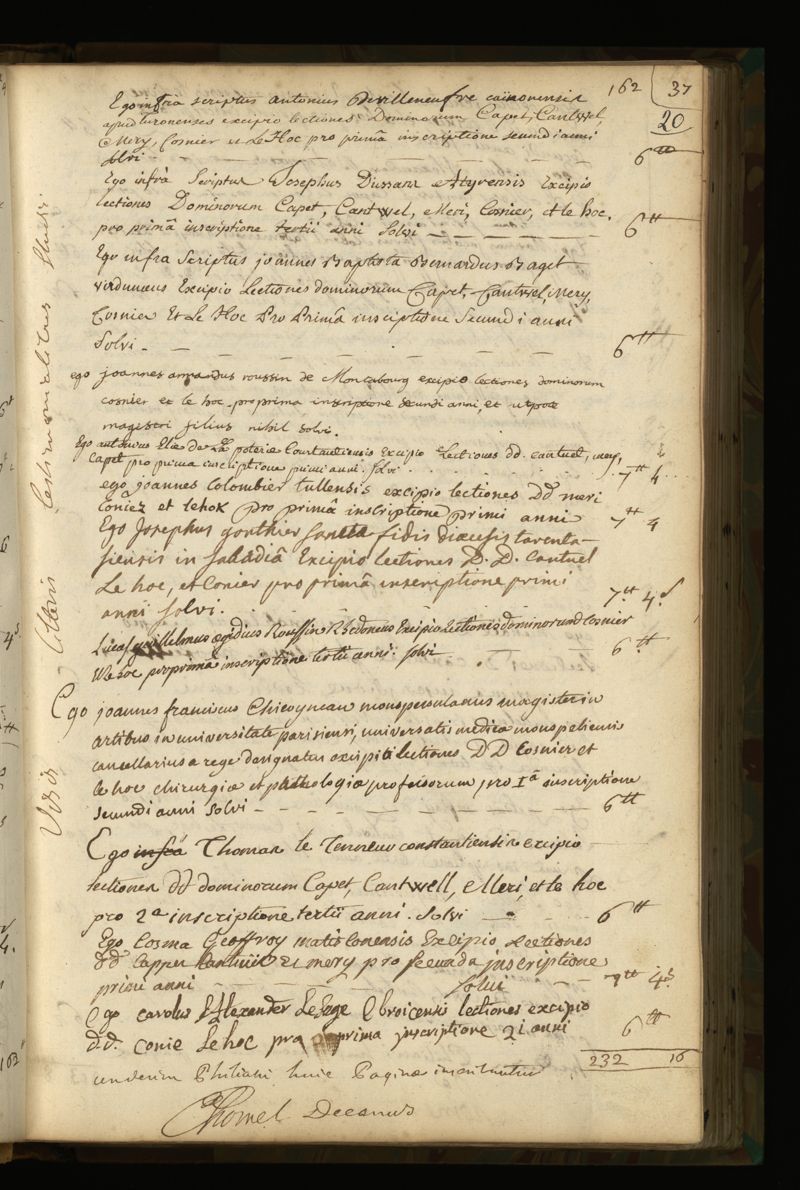 162 37
20
Ego infra scriptus antonius Devilleneufve
apud turonenses excipio lectiones Dominorum Capet, Cantwel,
Mery, Cosnier et Le Hoc pro primâ inscriptione secundi anni
solvi - - - - 6 tt
Ego infrà Scriptus Josephus Dussara Atyrensis Excipio
lectiones Dominorum Capet, Cantwel, Meri, Cosnier, et le hoc.
pro primâ inscriptione tertii anni Solvi - - - - 6 tt
Ego infra Scriptus joannes Baptista Bernardus Baget
Excipio Lectiones dominorum Capet, Cantwel, Mery,
Cosnier Et Le Hoc Pro Primâ insciptione Secundi anni
Solvi - - - - - - 6 tt
ego joannes armandus roussin de Montabourg excipio lectiones dominorum
cosnier et le hoc pro prima inscriptione secundi anni, et utpote
magistri filius nihil solvi.
Ego antonius Elie De la poterie Excipio Lectiones dd. cantuel, mery,
Capet, pro prima inscriptione primi anni. solvi . . . . 7 tt 4
ego joannes Colombier tullensis excipio lectiones DD meri
coniez et lehok pro primâ inscriptione primi anni 7 tt 4
Ego Josephus gonthier sancta fidis diœcesis tarenta-
siensis in Excipio lectiones D. D. Cantuel
Le hoc, et Conier pro primâ inscriptione primi
anni solvi. 7 tt 4 s
Lucas guillelmus ægidius Roussin Rhedoneus Excipio Lectiones dominorum Cosnier
et le hoc pro primâ inscriptione tertii anni. solvi 6 tt
Ego joannes franciscus Chicoyneau monspessulanus magister in
artibus in universitate parisiensi, universatis medicæ monspeliensis
cancellarius a rege designatus excipit lectiones DD Cosnier et
le hoc chirurgiæ et pathologiæ professorum pro 1a inscriptione
secundi anni solvi - - - - - - 6 tt
Ego infrà Thomas le Terreux constantiensis excipio
lectiones dd dominorum Capet, Cantwell, Meri, et le hoc
pro 2a inscriptione tertii anni. Solvi - - - 6 tt
Ego Cosma Geoffroy matisconensis Excipio Lectiones
dd Capper Et mery pro secunda inscriptione
primi anni - - - solui - - - 7 tt 4 s
Ego carolus Alexander LeSage Ebroicensis lectiones excipio
d.d. Conie Lehoc pro prima inscriptione 2i anni 6 tt
232 16
huic Paginæ
Chomel Decanus
Visis litteris testimonialibus studii